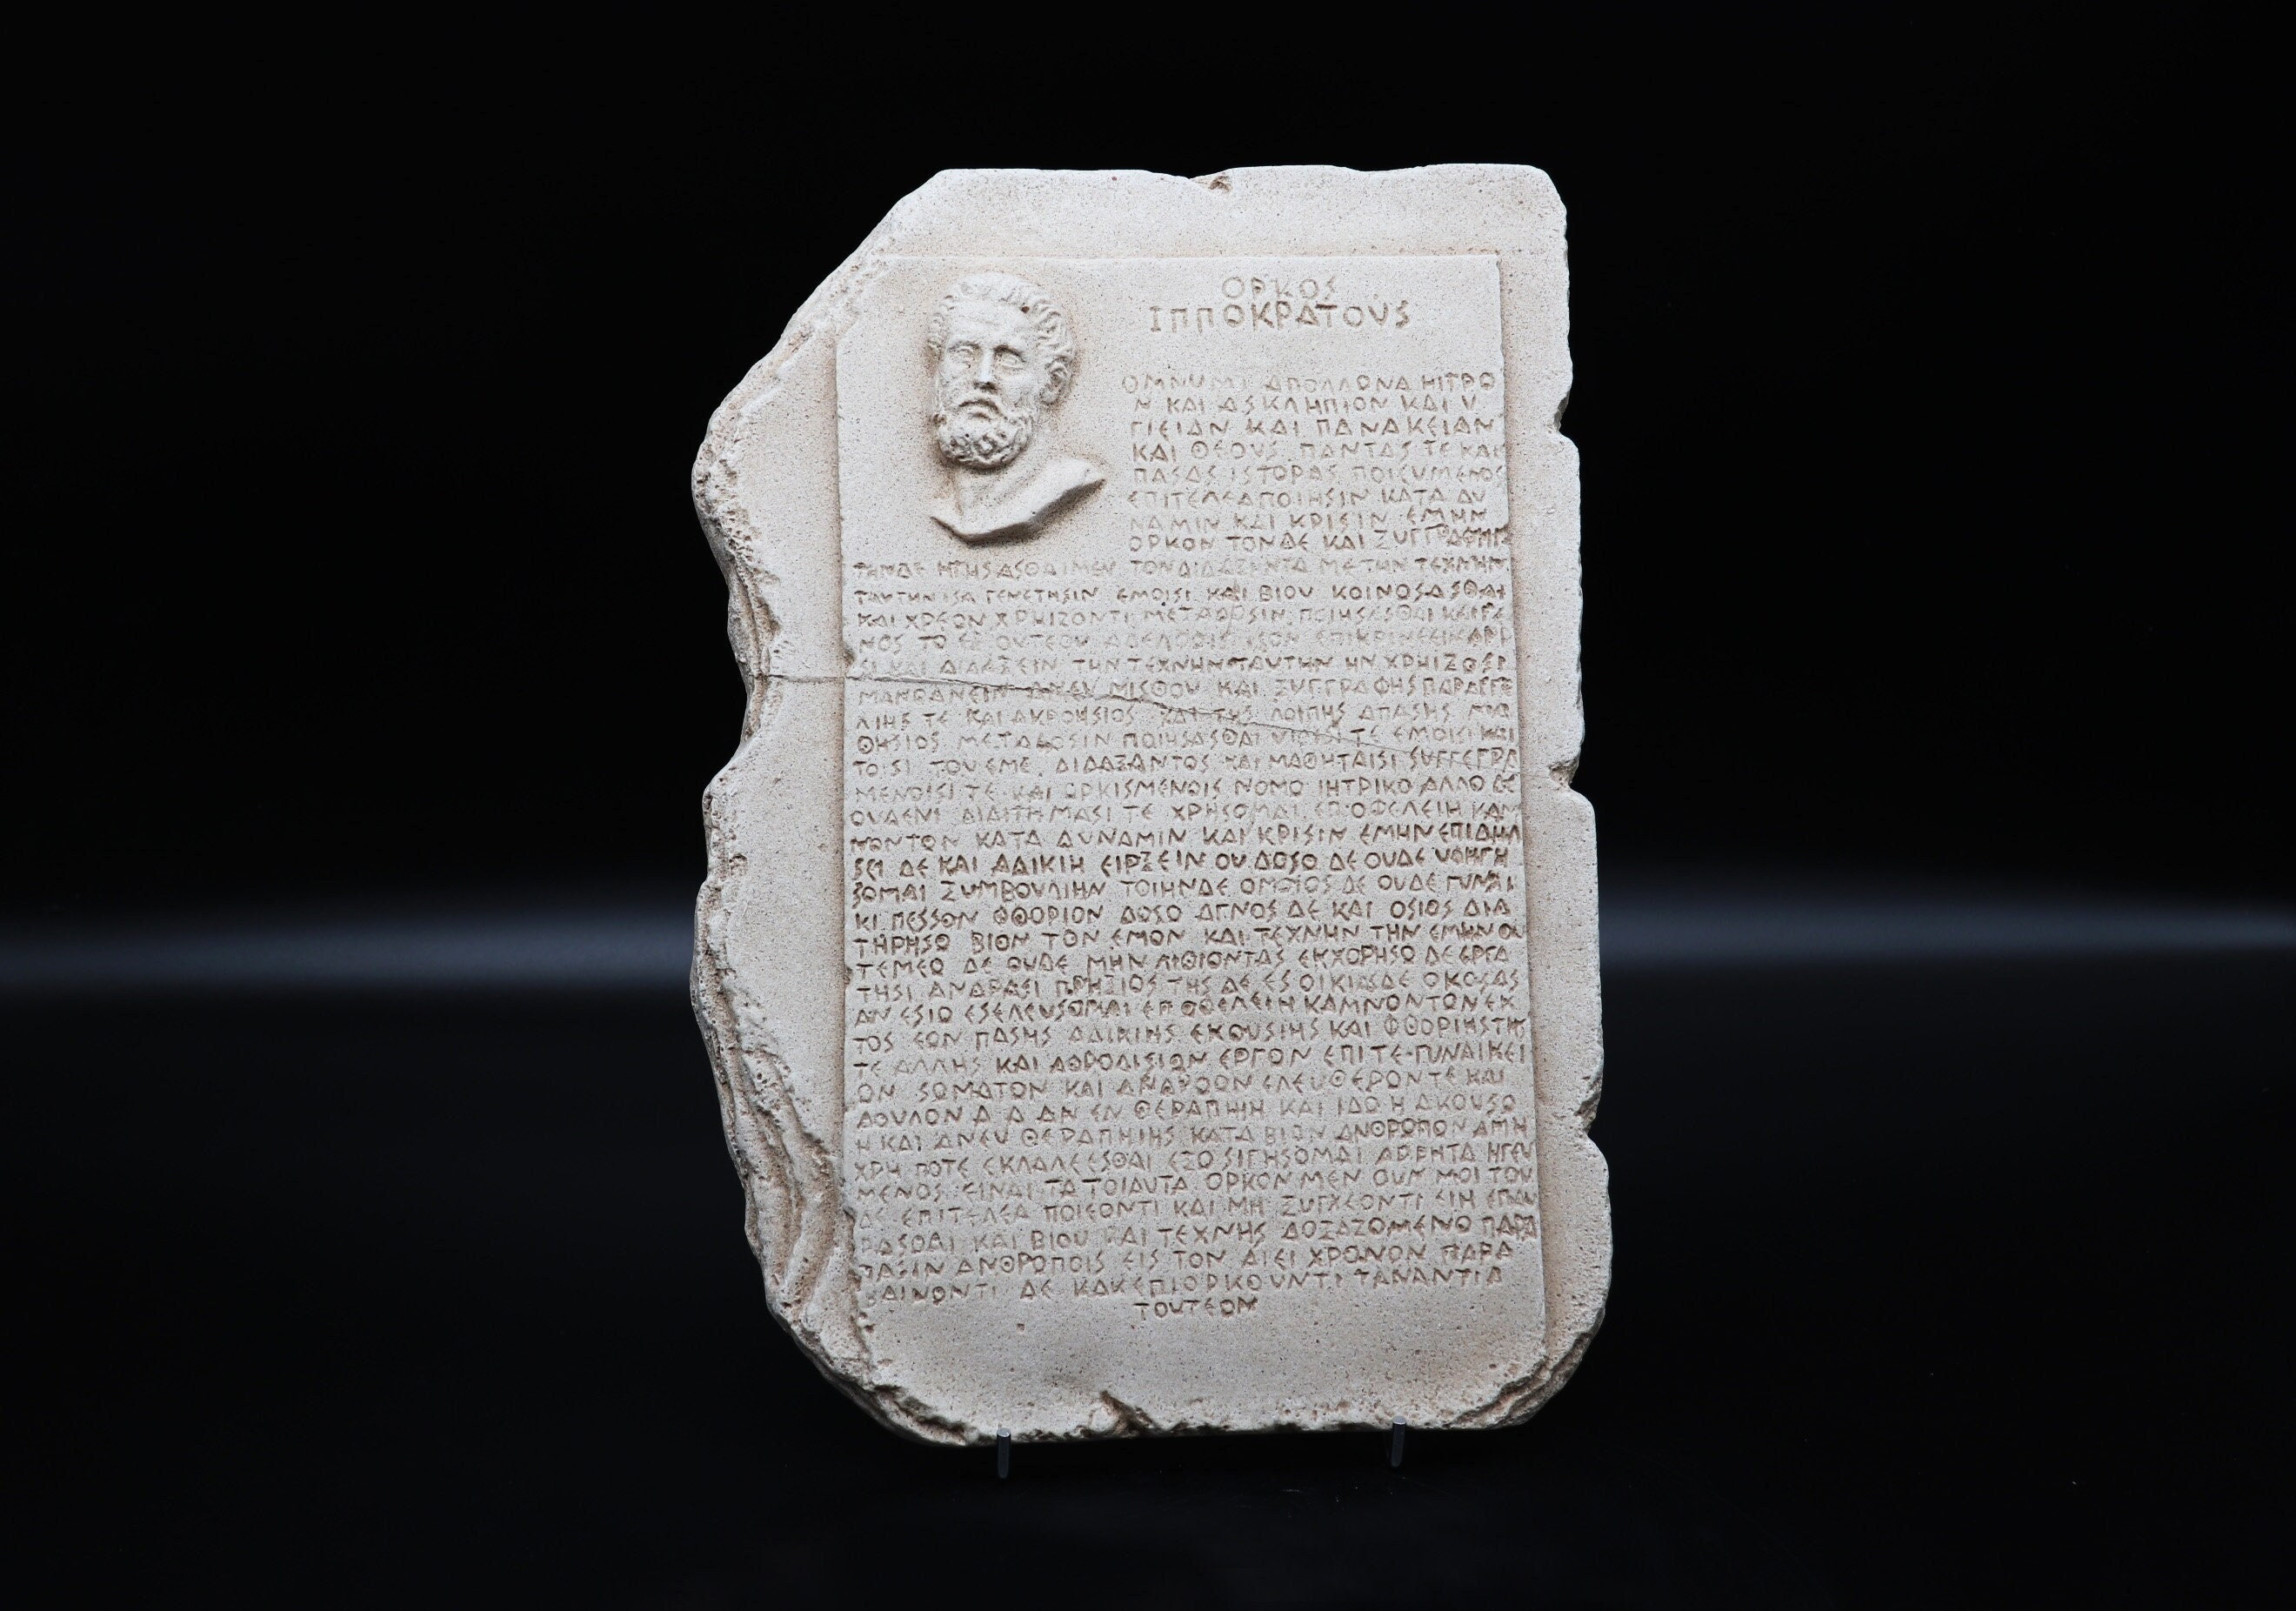 ΟΡΚΟS
ΙΠΠΟΚΡΑΤΟΥS
ΟΜΝΥΜΙ ΑΠΟΛΛΩΝΑ ΗΙΤΡΟ
Ν ΚΑΙ ΑSΚΛΗΠΙΟΝ ΚΑΙ Υ
ΓΙΕΙΑΝ ΚΑΙ ΠΑΝΑΚΕΙΑΝ
ΚΑΙ ΘΕΟΥS ΠΑΝΤΑS ΤΕ ΚΑΙ
ΠΑSΑS ΙSΤΟΡΑS ΠΟΙΕΥΜΕΝΟS
ΕΠΙΤΕΛΕΑ ΠΟΙΗSΙΝ ΚΑΤΑ ΔΥ
ΝΑΜΙΝ ΚΑΙ ΚΡΙSΙΝ ΕΜΗΝ
ΟΡΚΟΝ ΤΟΝΔΕ ΚΑΙ ΞΥΓΓΡΑΦΗΝ
ΤΗΝΔΕ ΤΟΝ ΔΙΔΑΞΑΝΤΑ ΜΕ ΤΗΝ ΤΕΧΝΗΝ
ΤΑΥΤΗΝ ΙSΑ ΓΕΝΕΤΗSΙΝ ΕΜΟΙSΙ ΚΑΙ ΒΙΟΥ ΚΟΙΝΟSΑSΘΑΙ
ΚΑΙ ΧΡΕΩΝ ΧΡΗΙΖΟΝΤΙ ΜΕΤΑΔΟSΙΝ ΠΟΙΗSΑSΘΑΙ ΚΑΙ ΓΕ
ΝΟS ΤΟ ΕΞ ΟΥΤΕΟΥ ΑΔΕΛΦΟΙS ΙSΟΝ
SΙ ΚΑΙ ΔΙΔΑΞΕΙΝ ΤΗΝ ΤΕΧΝΗΝ ΤΑΥΤΗΝ ΗΝ ΧΡΗΙΖΟSΙ
ΜΑΝΘΑΝΕΙΝ ΑΝΕΥ ΜΙSΘΟΥ ΚΑΙ ΞΥΓΓΡΑΦΗS ΠΑΡΑΓΓΕ
ΛΙΗS ΤΕ ΚΑΙ ΑΚΡΟΗSΙΟS ΚΑΙ ΤΗS ΛΟΙΠΗS ΑΠΑSΗS ΜΑ
ΘΗSΙΟS ΜΕΤΑΔΟSΙΝ ΠΟΙΗSΑSΘΑΙ ΥΙΟΙSΙ ΤΕ ΕΜΟΙSΙ ΚΑΙ
ΤΟΙSΙ ΤΟΥ ΕΜΕ ΔΙΔΑΞΑΝΤΟS ΚΑΙ ΜΑΘΗΤΑΙSΙ SΥΓΓΕΓΡΑ
ΜΕΝΟΙSΙ ΤΕ ΚΑΙ ΩΡΚΙSΜΕΝΟΙS ΝΟΜΟ ΙΗΤΡΙΚΟ ΑΛΛΟ ΔΕ
ΟΥΔΕΝΙ ΔΙΑΙΤΗΜΑSΙ ΤΕ ΧΡΗSΟΜΑΙ ΕΠ ΟΦΕΛΕΙΗ ΚΑΜ
ΝΟΝΤΩΝ ΚΑΤΑ ΔΥΝΑΜΙΝ ΚΑΙ ΚΡΙSΙΝ ΕΜΗΝ ΕΠΙ ΔΗΛ
SΕΙ ΔΕ ΚΑΙ ΑΔΙΚΙΗ ΕΙΡΞΕΙΝ ΟΥ ΔΩSΩ ΔΕ ΟΥΔΕ ΥΦΗΓΗ
SΟΜΑΙ ΞΥΜΒΟΥΛΙΗΝ ΤΟΙΗΝΔΕ ΟΜΟΙΟS ΔΕ ΟΥΔΕ ΓΥΝΑΙ
ΚΙ ΠΕSSΟΝ ΦΘΟΡΙΟΝ ΔΩSΩ ΑΓΝΟS ΔΕ ΚΑΙ ΟSΙΟS ΔΙΑ
ΤΗΡΗSΩ ΒΙΟΝ ΤΟΝ ΕΜΟΝ ΚΑΙ ΤΕΧΝΗΝ ΤΗΝ ΕΜΗΝ ΟΥ
ΤΕΜΕΩ ΔΕ ΟΥΔΕ ΜΗΝ ΛΙΘΙΩΝΤΑS ΕΚΧΟΡΗSΩ ΔΕ ΕΡΓΑ
ΤΗSΙ ΑΝΔΡΑSΙ ΠΡΗΞΙΟS ΤΗSΔΕ ΕS ΟΙΚΙΑS ΔΕ ΟΚΟSΑS
ΑΝ ΕSΙΩ ΕSΕΛΕΥSΟΜΑΙ ΕΠ ΟΦΕΛΕΙΗ ΚΑΜΝΟΝΤΩΝ ΕΚ
ΤΟS ΕΩΝ ΠΑSΗS ΑΔΙΚΙΗS ΕΚΟΥSΙΗS ΚΑΙ ΦΘΟΡΙΗS ΤΗS
ΤΕ ΑΛΛΗS ΚΑΙ ΑΦΡΟΔΙSΙΩΝ ΕΡΓΩΝ ΕΠΙ ΤΕ ΓΥΝΑΙΚΕΙ
ΩΝ SΩΜΑΤΩΝ ΚΑΙ ΑΝΔΡΩΩΝ ΕΛΕΥΘΕΡΩΝ ΤΕ ΚΑΙ
ΔΟΥΛΩΝ Α Δ ΑΝ ΕΝ ΘΕΡΑΠΗΙΗ ΚΑΙ ΙΔΩ Η ΑΚΟΥSΩ
Η ΚΑΙ ΑΝΕΥ ΘΕΡΑΠΗΙΗS ΚΑΤΑ ΒΙΩΝ ΑΝΘΡΩΠΩΝ Α ΜΗ
ΧΡΗ ΠΟΤΕ ΕΚΛΑΛΕΕSΘΑΙ ΕΞΩ SΙΓΗSΟΜΑΙ ΑΡΡΗΤΑ ΗΓΕΥ
ΜΕΝΟS ΕΙΝΑΙ ΤΑ ΤΟΙΑΥΤΑ ΟΡΚΟΝ ΜΕΝ ΟΥΝ ΜΟΙ ΤΟΥ
ΔΕ ΕΠΙΤΕΛΕΑ ΠΟΙΕΟΝΤΙ ΚΑΙ ΜΗ ΞΥΓΧΕΟΝΤΙ ΕΙΗ ΕΠΑΥ
ΡΑSΘΑΙ ΚΑΙ ΒΙΟΥ ΚΑΙ ΤΕΧΝΗS ΔΟΞΑΖΟΜΕΝΟ ΠΑΡΑ
ΠΑSΙΝ ΑΝΘΡΩΠΟΙS ΕΙS ΤΟΝ ΑΙΕΙ ΧΡΟΝΟΝ ΠΑΡΑ
ΒΑΙΝΟΝΤΙ ΔΕ ΚΑΚ ΕΠΙΟΡΚΟΥΝΤΙ ΤΑΝΑΝΤΙΑ
ΤΟΥΤΕΩΝ